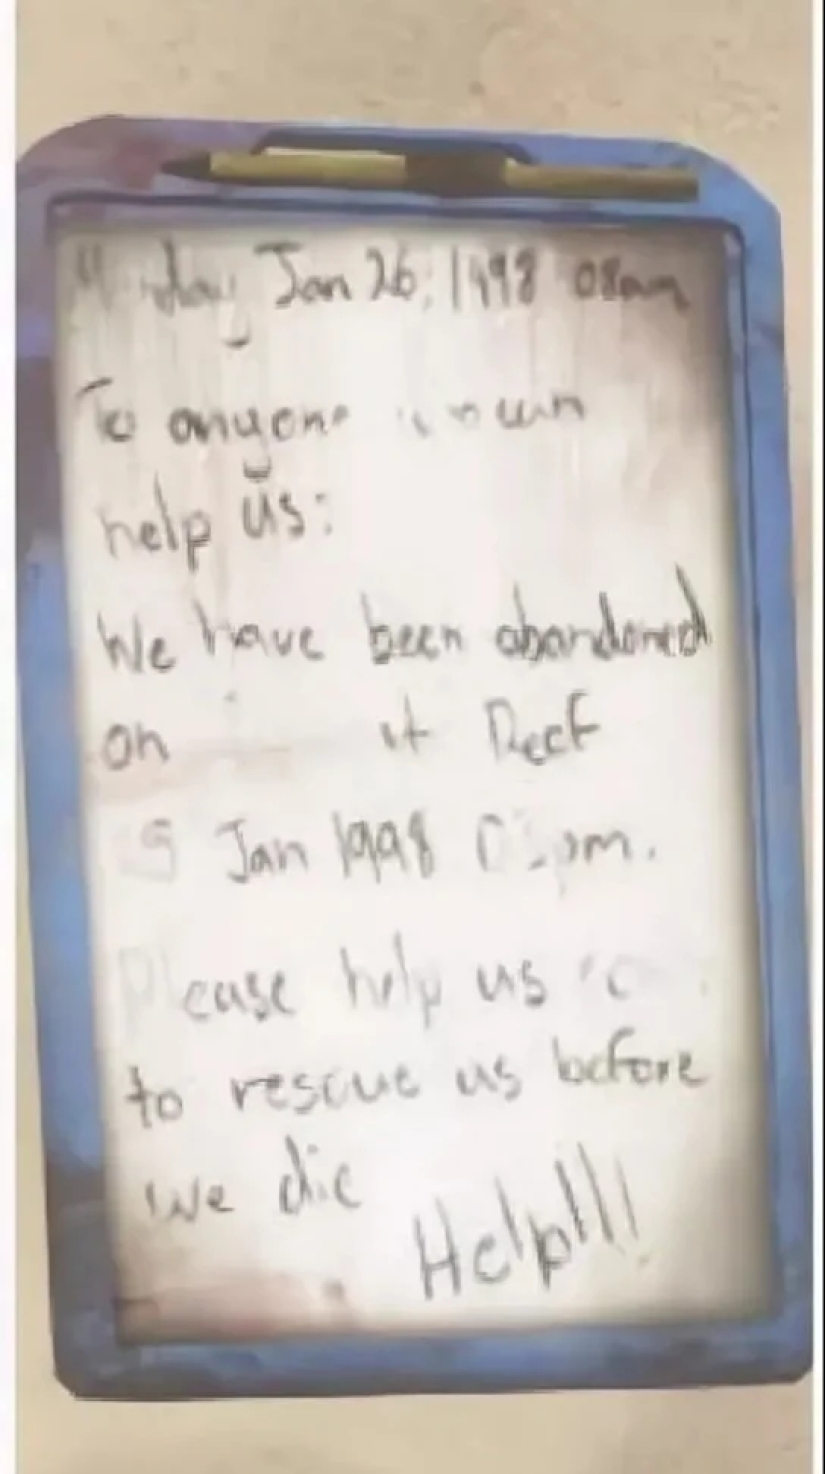 Monday Jan 26, 1998 08am
To anyone
help us:
We have been abandoned
on Reef
Jan 1998 pm.
Please help us
to rescue us before
we die
Help!!!